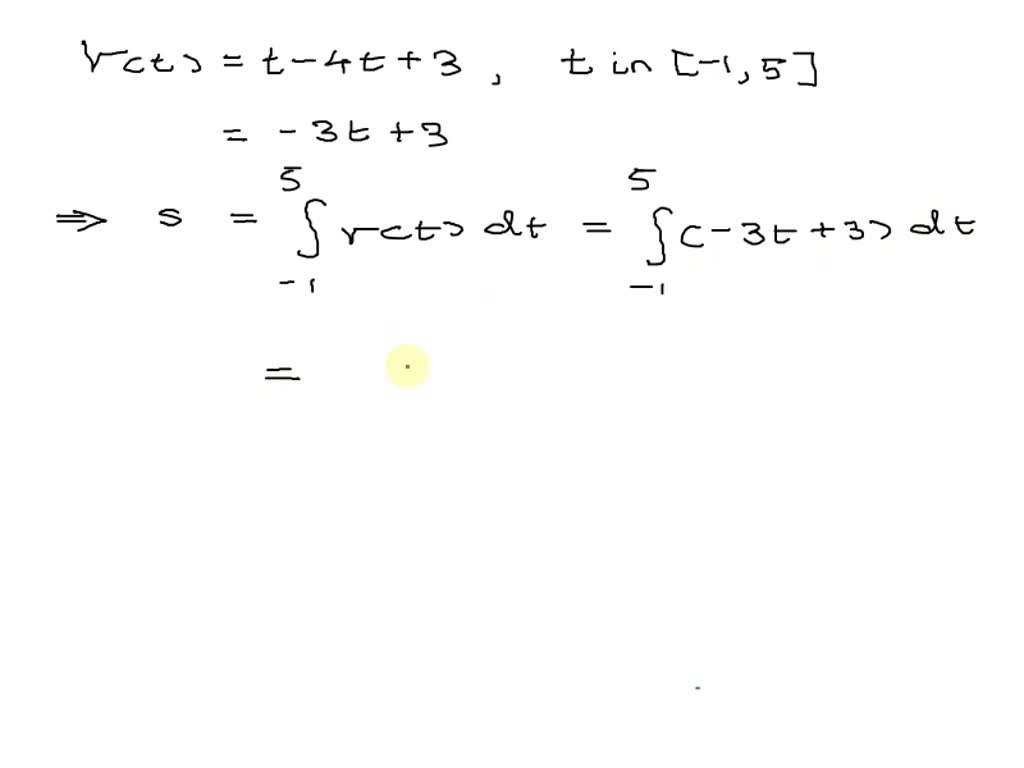 v(t) = t - 4t + 3 , t in [-1, 5]
= - 3t + 3
⇒ s = ∫₋₁⁵ v(t) dt = ∫₋₁⁵ (-3t + 3) dt
=